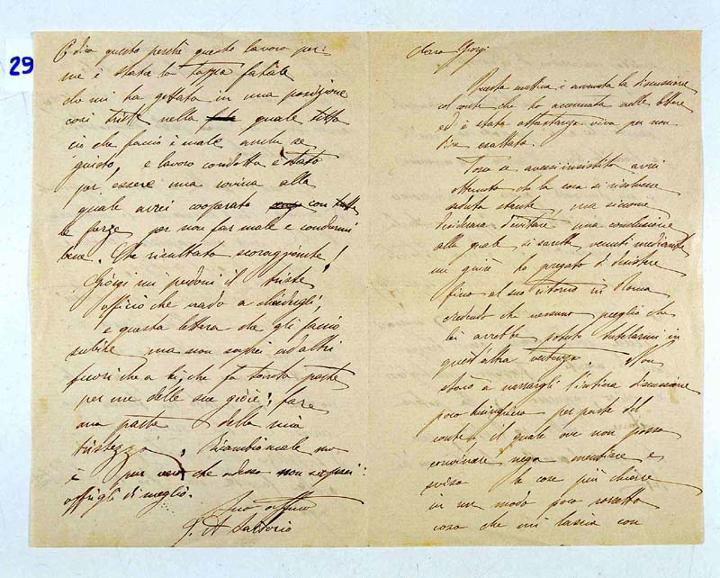 29
Caro Giorgi
Questa mattina è avvenuta la discussione
col conte che ho accennata nelle lettere
ed è stata abbastanza viva per non
dire esaltata.
Forse se avessi insistito avrei
ottenuto che la cosa si risolvesse
seduta stante, ma siccome
desiderava d'evitare una conclusione
alla quale si sarebbe venuti mediante
ho pregato di desistere
fino al suo ritorno in Roma
credendo che nessuno meglio che
lei avrebbe potuto tutelarmi in
quest'altra vertenza. Non
starò a narrargli l'intera discussione
poco per parte del
conte, il quale ove non possa
convincere nega mentisce e
svisa le cose più chiare
in un modo poco corretto
cosa che mi lascia con
E dico questo perchè questo lavoro per
me è stata la tappa fatale
che mi ha gettato in una posizione
così triste nella quale tutto
ciò che faccio è male anche se
giusto, e lavoro condotto è stato
per essere una rovina alla
quale avrei cooperato con tutte
le forze per non far male e condurmi
bene. Che risultato scoraggiante!
Giorgi mi perdoni il triste
officio che vado a chiedergli;
e questa lettera che gli faccio
subire ma non saprei ad altri
fuori che a lei, che fa tanta parte
per me delle sue gioie, fare
una parte della mia
tristezza. Ricambio male ma
è pur che adesso non saprei
offrirgli di meglio.
Suo affmo
G. A. Sartorio